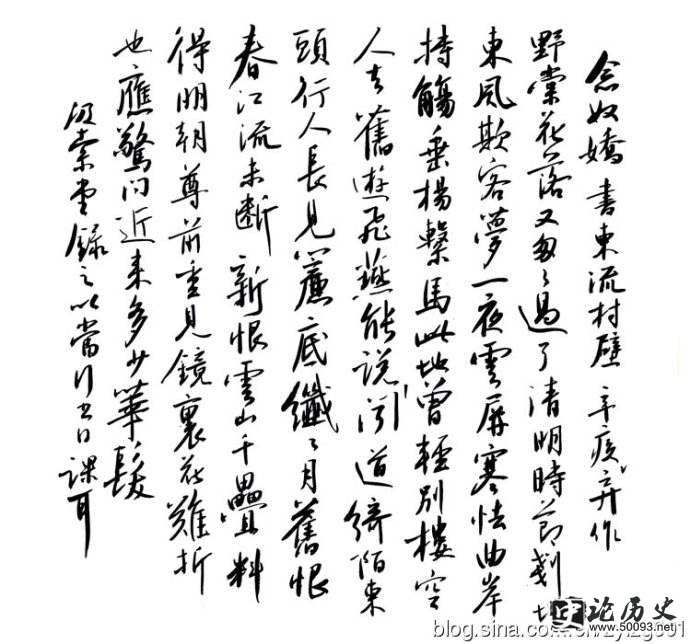 念奴嬌 書東流村壁 辛疾弃作
野棠花落又匆々過了清明時節剗地
東風欺客夢一夜雲屏寒怯曲岸
持觴垂楊繫馬此地曾輕別樓空
人去舊遊飛燕能說聞道綺陌東
頭行人長見簾底纖々月舊恨
春江流未斷新恨雲山千疊料
得明朝尊前重見鏡裏花難折
也應驚問近來多少華髮
堂錄之以當日課耳
论历史
www.50093.net
blog.sina.com